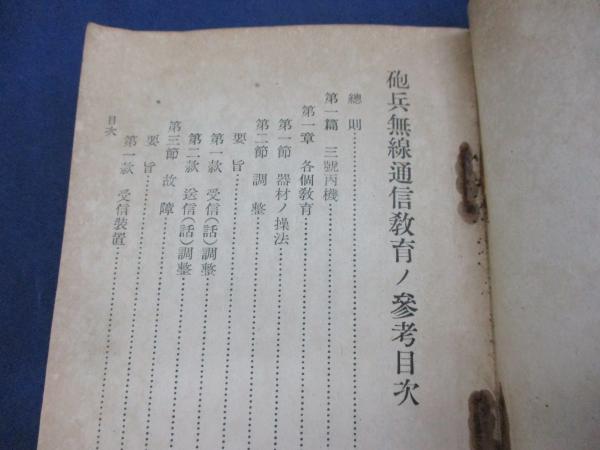 砲兵無線通信教育ノ參考目次
總則
第一篇 三號丙機
第一章 各個教育
第一節 器材ノ操法
第二節 調整
要旨
第一款 受信(話)調整
第二款 送信(話)調整
第三節 故障
要旨
第一款 受信裝置
目次